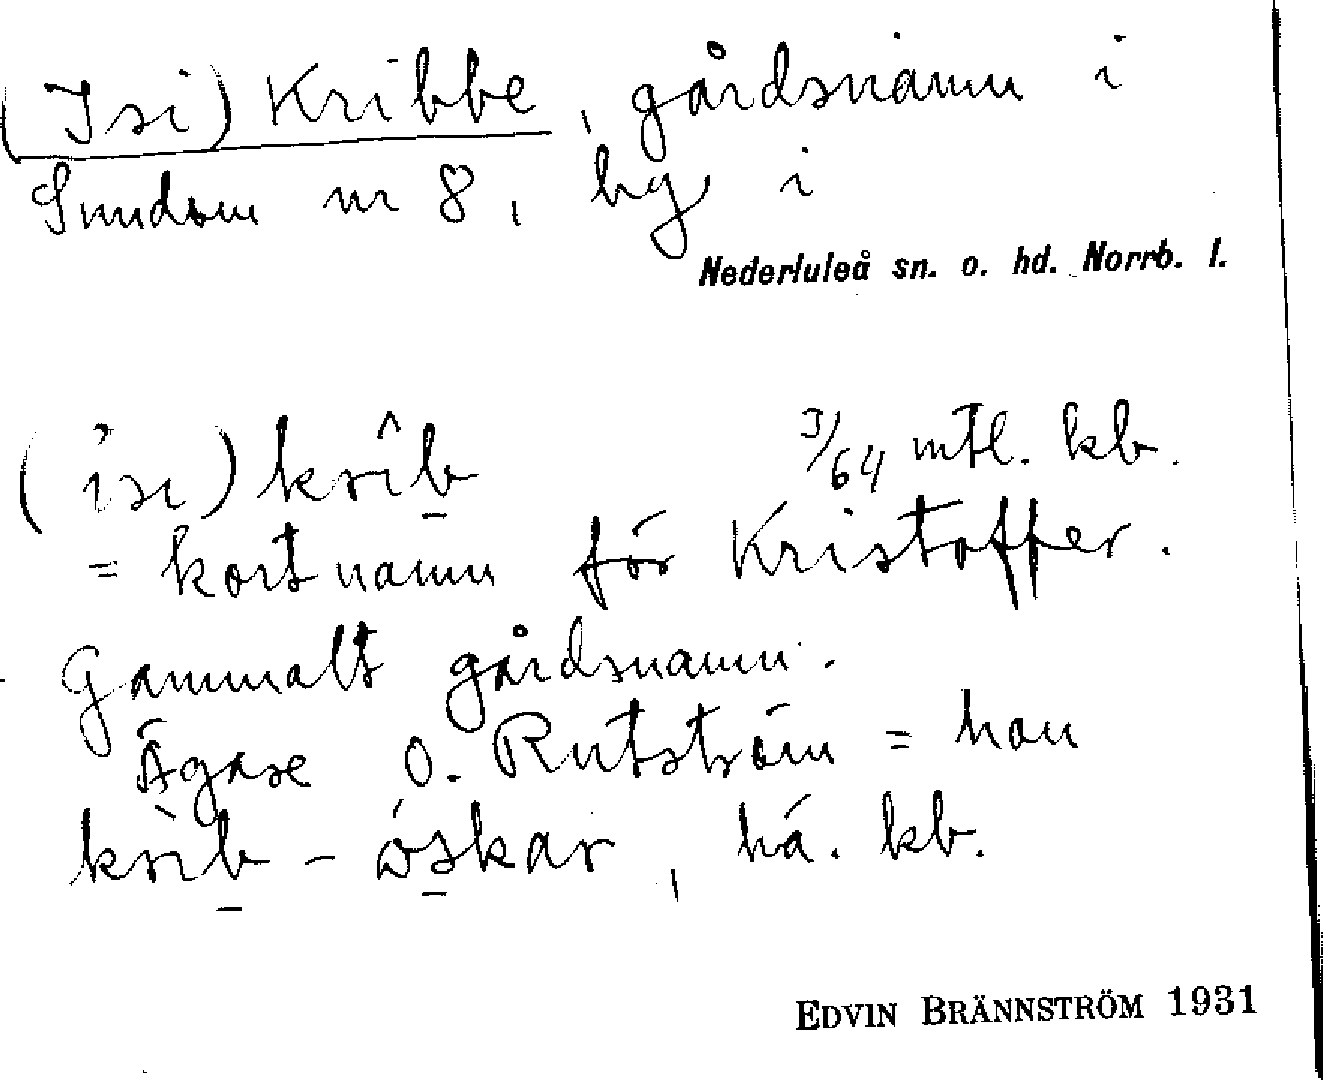 (Isi) Kribbe, gårdsnamn i
Sundom nr 8, hg i
Nederluleå sn. o. hd. Norrb. l.
(ìsı) krîb̲ 3/64 mtl. kb.
= kortnamn för Kristoffer.
Gammalt gårdsnamn.
Ägare O. Rutström = han
krìb̲-óskar, há. kb.
EDVIN BRÄNNSTRÖM 1931